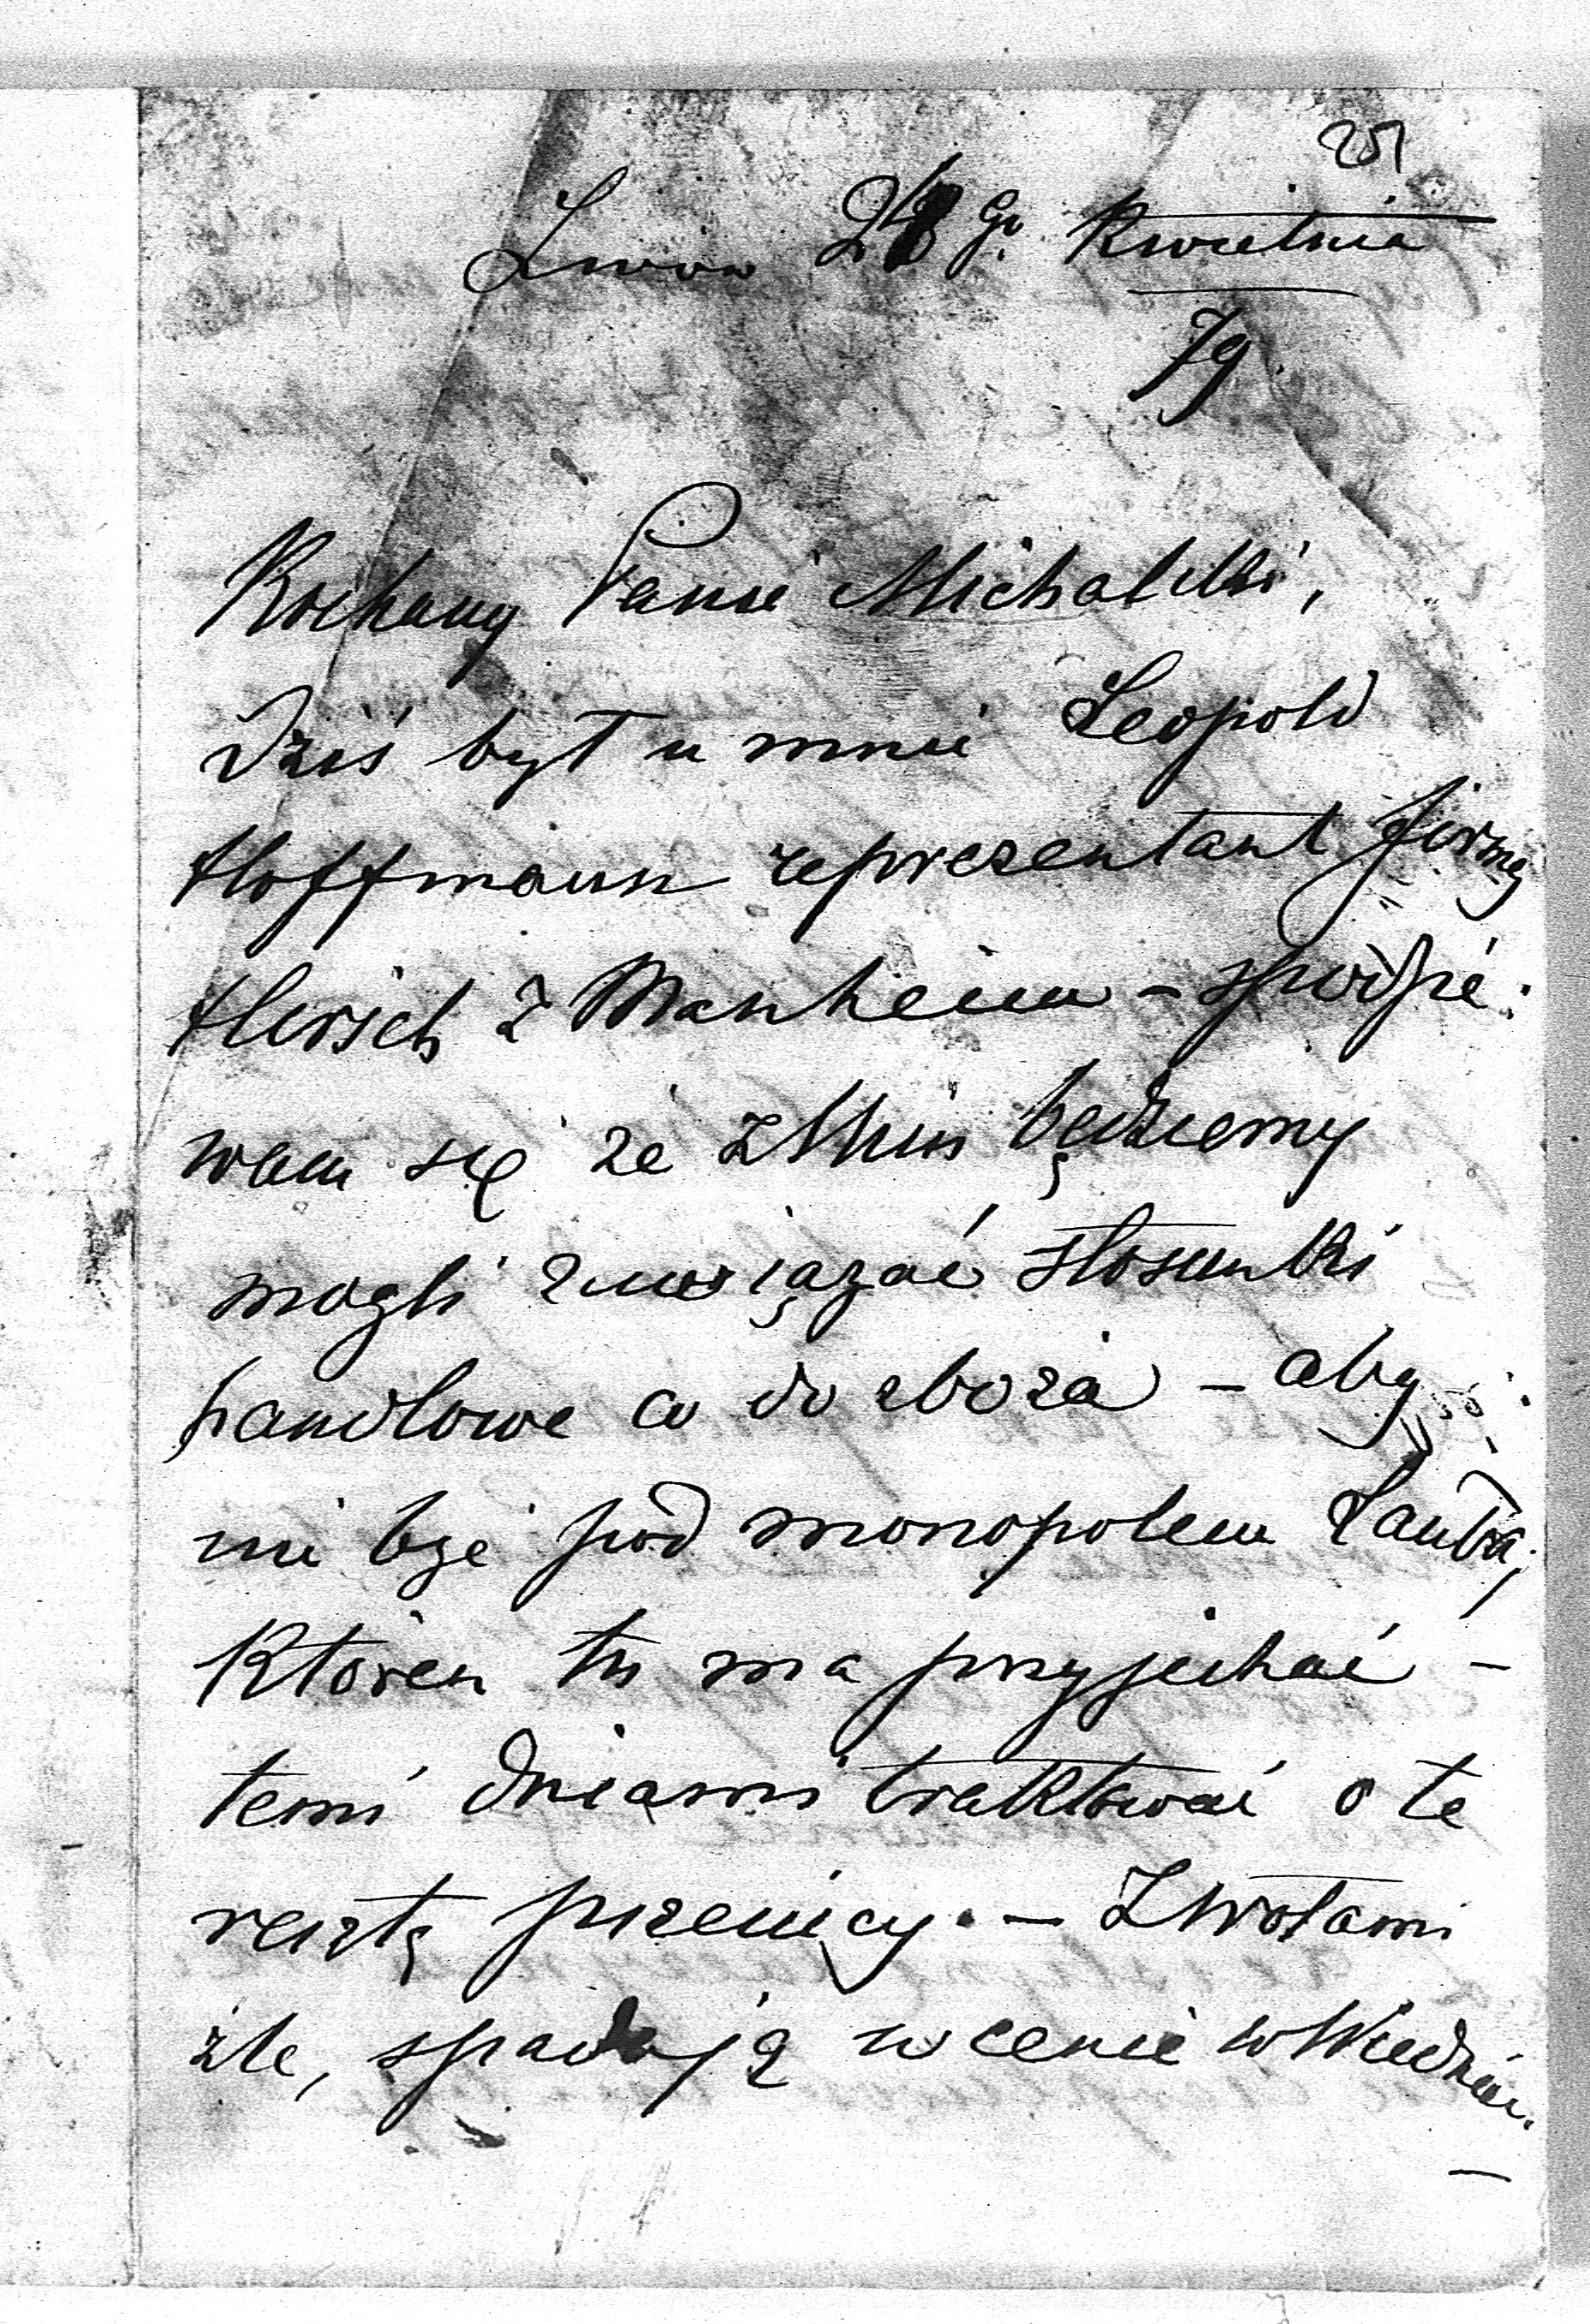 251
Lwow 28 go Kwietnia
79.
Kochany Panie Michalski,
Dziś był u mnie Leopold
Hoffmann reprezentant firmy
Hirsch z Manheim – spodzie:
wam się że z Nim będziemy
mogli zawiązać stosunki
handlowe co do zboża – aby
nie być pod monopolem
Ktoren tu ma przyjechać –
temi dniami traktować o te
resztę pszenicy. – Z Wołami
źle, spadają w cenie w Wiedniu.
–